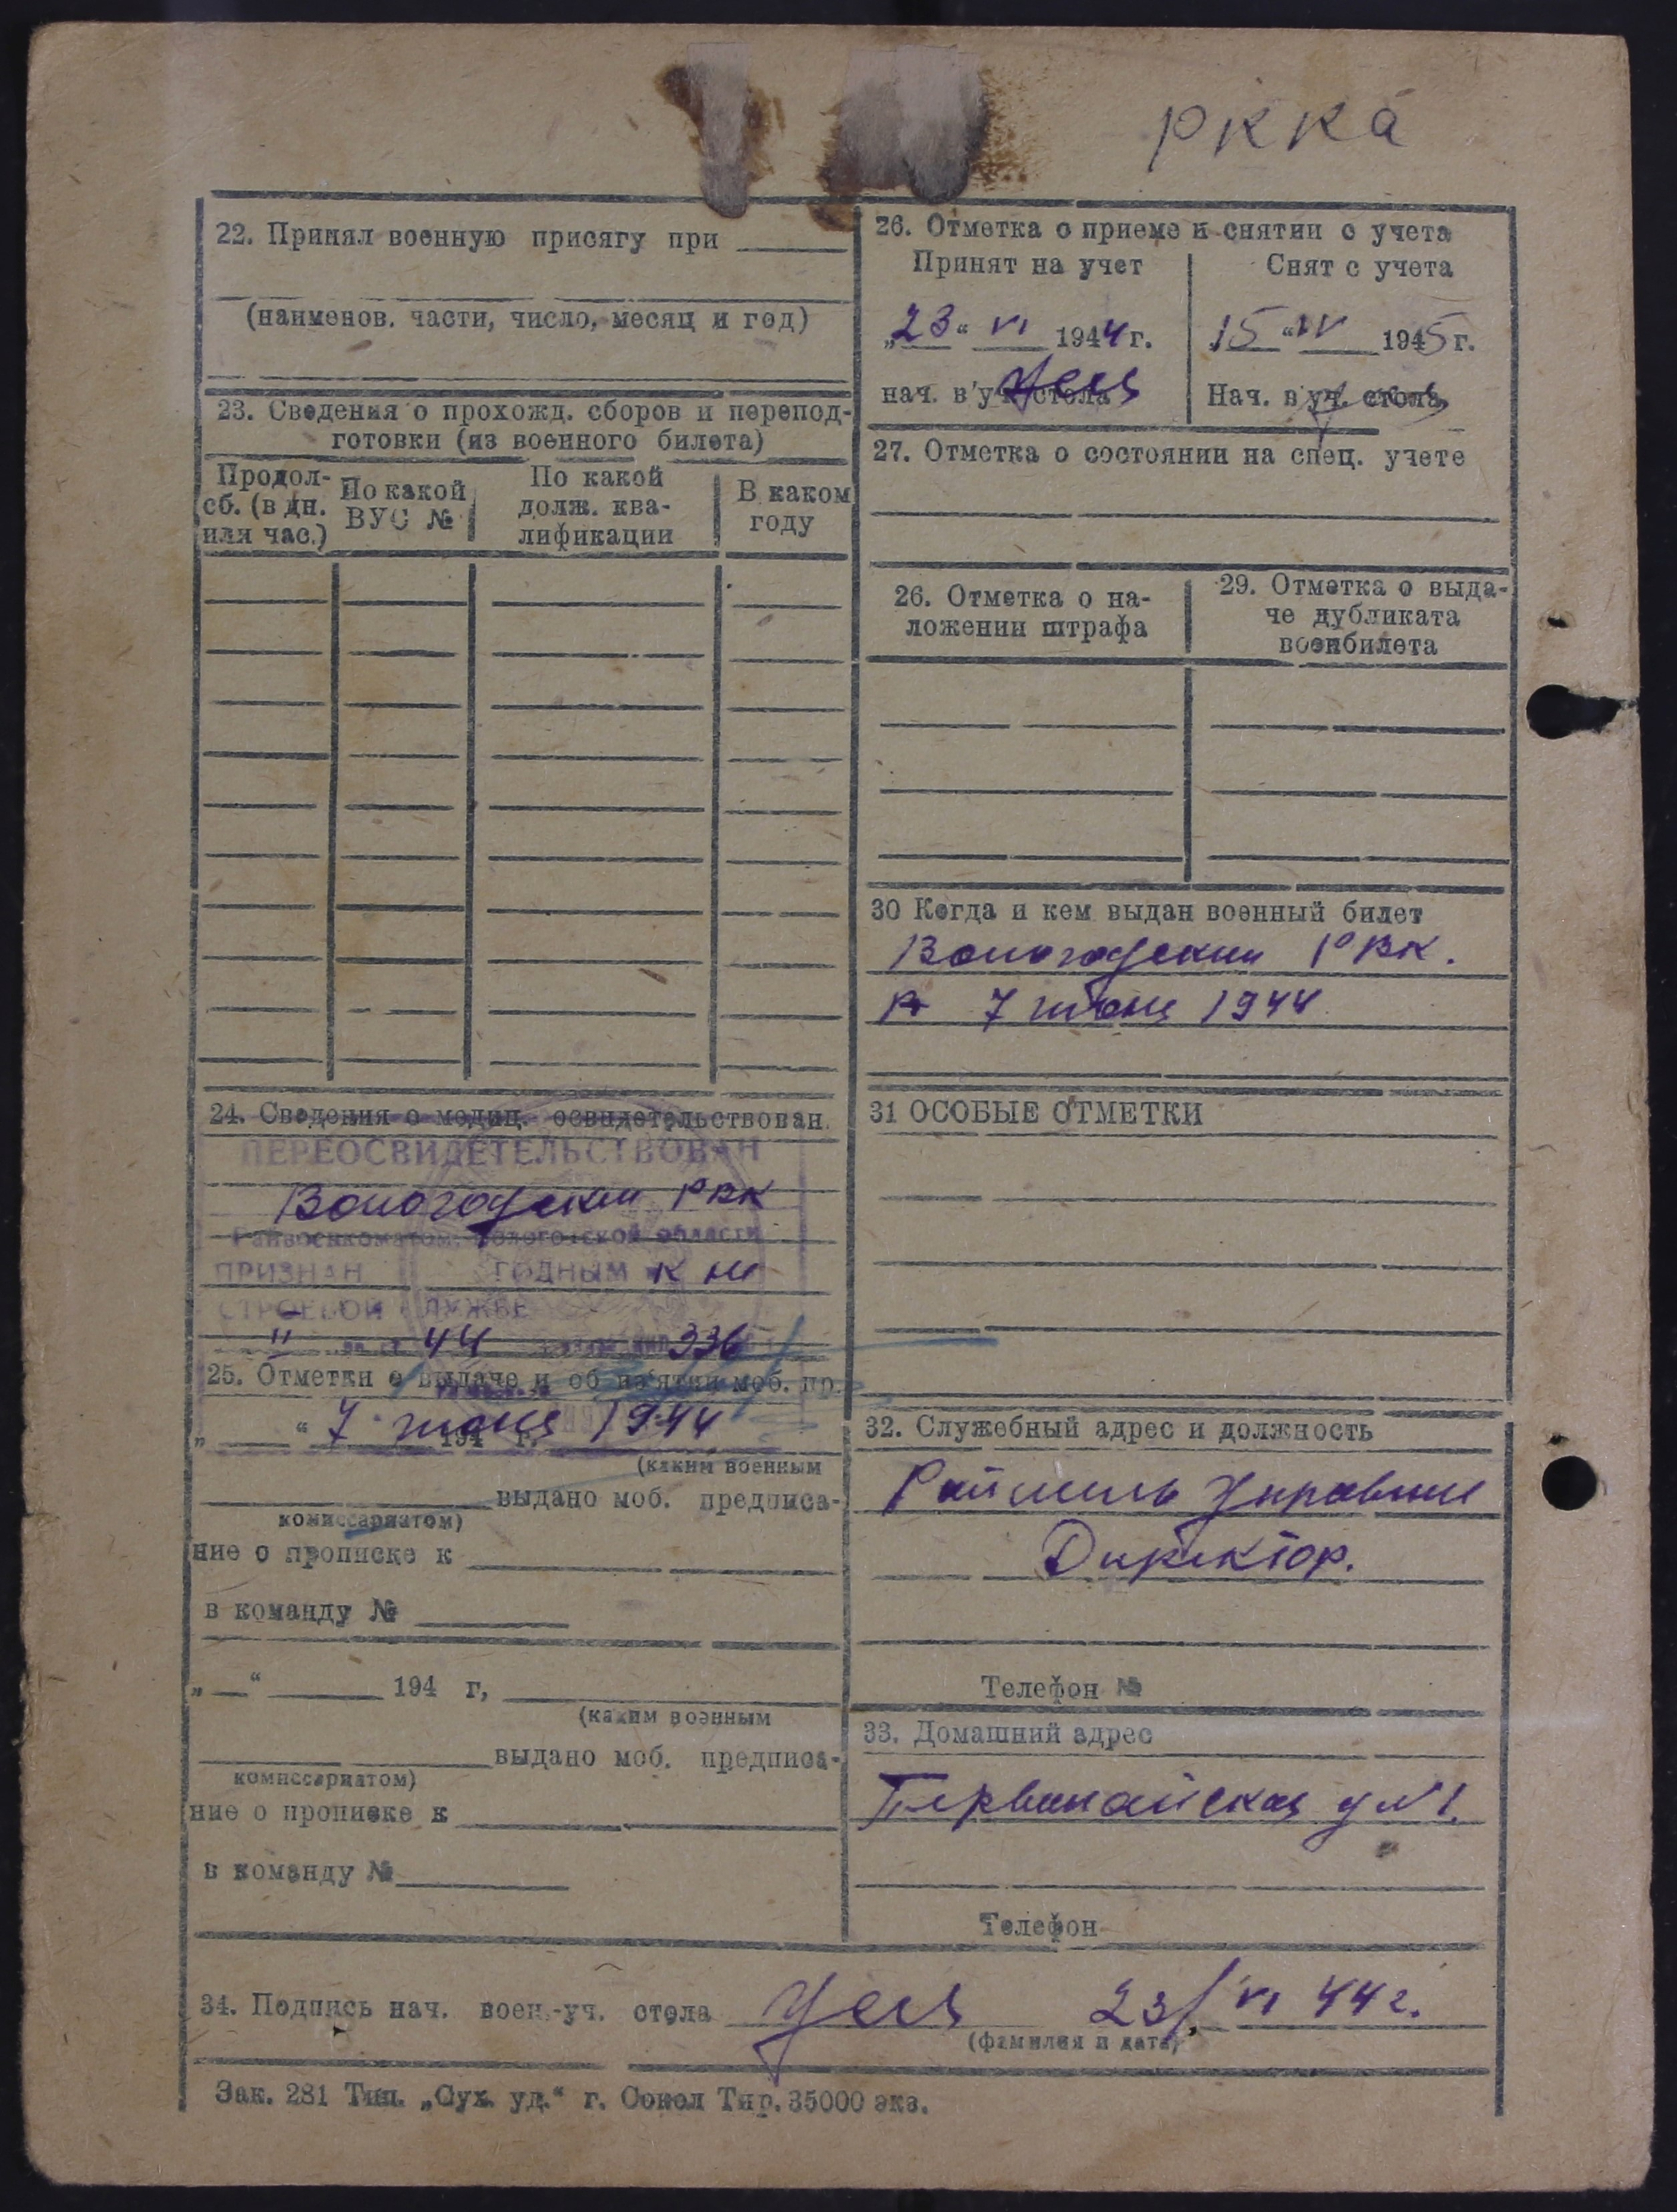 РККА
22. Принял военную присягу при
(наименов. части, число, месяц и год)
23. Сведения о прохожд. сборов и перепод-
готовки (из военного билета)
Продол-
сб. (в дн.
или час.)
По какой
ВУС №
По какой
долж. ква-
лификации
В каком
году
24. Сведения о медиц. освидетельствован.
ПЕРЕОСВИДЕТЕЛЬСТВОВАН
Вологодским РВК
Райвоенкоматом, Вологодской области
ПРИЗНАН ГОДНЫМ к не
СТРОЕВОЙ СЛУЖБЕ
44 336
25. Отметки о выдаче и об из'ятии моб. пр.
„ “ 7 июня 1944 194 г.
(каким военным
выдано моб. предписа-
комиссариатом)
ние о прописке к
в команду №
„ “ 194 г,
(каким военным
выдано моб. предписа-
комиссариатом)
ние о прописке к
в команду №
26. Отметка о приеме и снятии с учета
Принят на учет
„23“ VI 1944 г.
нач. в'уч. стола
Снят с учета
15“ IV 1945 г.
Нач. в уч. стола
27. Отметка о состоянии на спец. учете
26. Отметка о на-
ложении штрафа
29. Отметка о выда-
че дубликата
военбилета
30 Когда и кем выдан военный билет
Вологодским РВК.
7 июня 1944
31 ОСОБЫЕ ОТМЕТКИ
32. Служебный адрес и должность
Директор.
Телефон №
33. Домашний адрес
Первомайская д №1.
Телефон
34. Подпись нач. воен.-уч. стола 23/VI 44 г.
(фамилия и дата)
Зак. 281 Тип. „Сух. уд.“ г. Сокол Тир. 35000 экз.